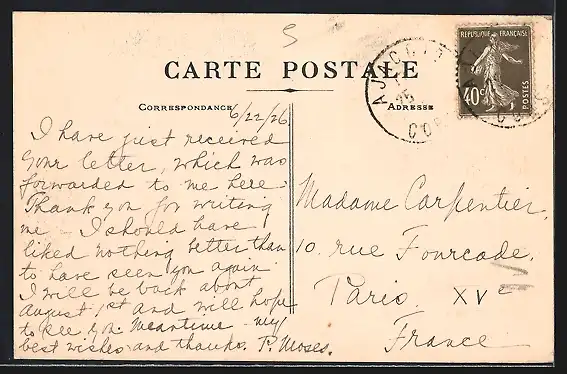 5
CARTE POSTALE
CORRESPONDANCE
ADRESSE
REPUBLIQUE FRANÇAISE
40c
POSTES
AJACCIO
25
COR
CORSE
6/22/26
I have just received
your letter, which was
forwarded to me here.
Thank you for writing
me - I should have
liked nothing better than
to have seen you again
I will be back about
August 1st and will hope
to see you. Meantime - my
best wishes and thanks. P. Moses.
Madame Carpentier,
10. rue Fourcade,
Paris. XVe
France